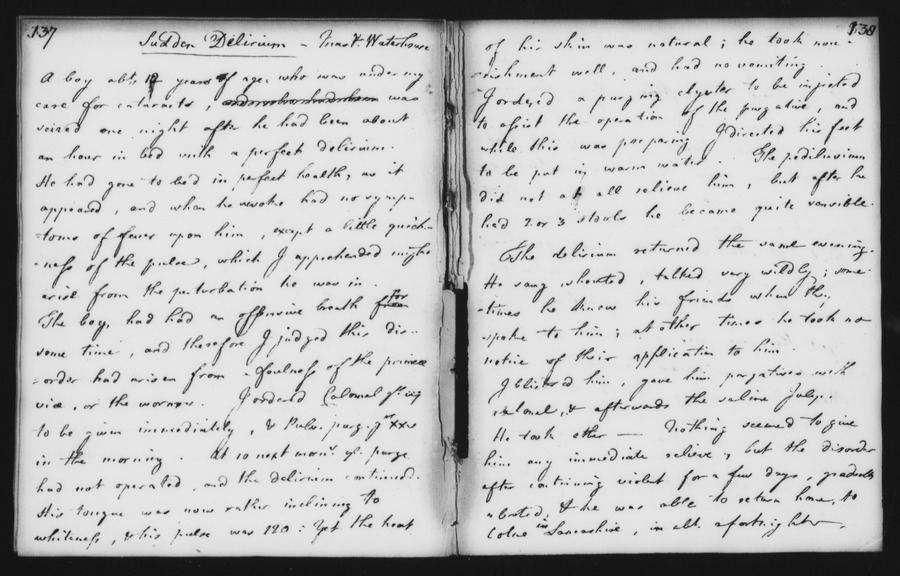 137
Sudden Delirium – Jnas. Waterhouse
A boy abt. 12 years of age, who was under my
care for cataracts, was
seized one night after he had been about
an hour in bed with a perfect delirium.
He had gone to bed in perfect health, as it
appeared, and when he awoke had no symp-
-toms of fever upon him, except a little quick-
-ness of the pulse, which I apprehended might
arise from the perturbation he was in.
The boy had had an offensive breath for
some time, and therefore I judged this dis-
-order had arisen from a foulness of the primæ
viæ, or the worms. I ordered Calomel gr. viij
to be given immediately, & Pulv. purg. gr. xxv
in the morning. At 10 next morng. ye. purge
had not operated, and the delirium continued.
His tongue was now rather inclining to
whiteness, & his pulse was 120: yet the heat
138
of his skin was natural; he took nou-
-rishment well, and had no vomiting.
I ordered a purging clyster to be injected
to assist the operation of the purgative, and
while this was preparing I directed his feet
to be put in warm water. The pediluvium
did not at all relieve him, but after he
had 2 or 3 stools he became quite sensible.
The delirium returned the same evening.
He sang, shouted, talked very wildly; some-
-times he knew his friends when they
spoke to him; at other times he took no
notice of their application to him.
I blistered him, gave him purgatives with
calomel, & afterwards the saline Julep.
He took ether — Nothing seemed to give
him any immediate relieve, but the disorder
after continuing violent for a few days, gradually
abated, & he was able to return home, to
Colne in Lancashire, in abt. a fortnight.